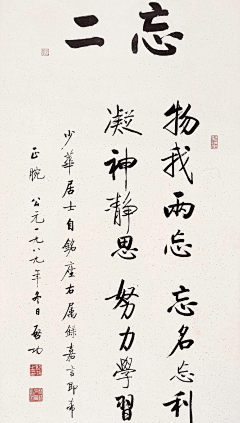 忘二
物我兩忘忘名忘利
凝神靜思努力學習
少華居士自銘座右属錄嘉言即希
正腕 公元一九八九年冬日 啓功